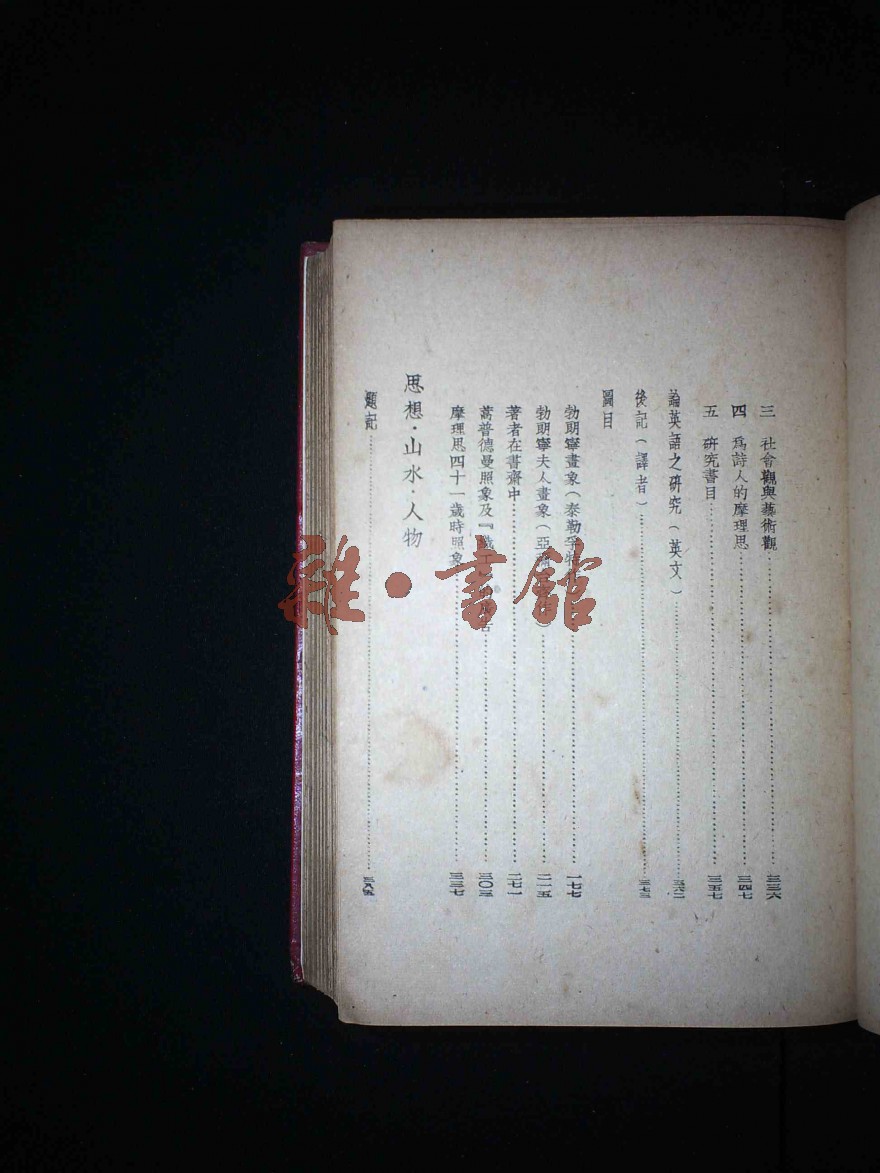 三 社會觀與藝術觀……三三六
四 爲詩人的摩理思……三四七
五 研究書目……三五七
論英語之研究(英文)……三六二
後記(譯者)……三七三
圖目
勃朗寧畫象(泰勒孚特……一七七
勃朗寧夫人畫象(亞……)……二一五
著者在書齋中……二七一
萬普德曼照象及『織工……三〇三
摩理思四十一歲時照象……三三七
思想·山水·人物
題記……三八五
雜·書館